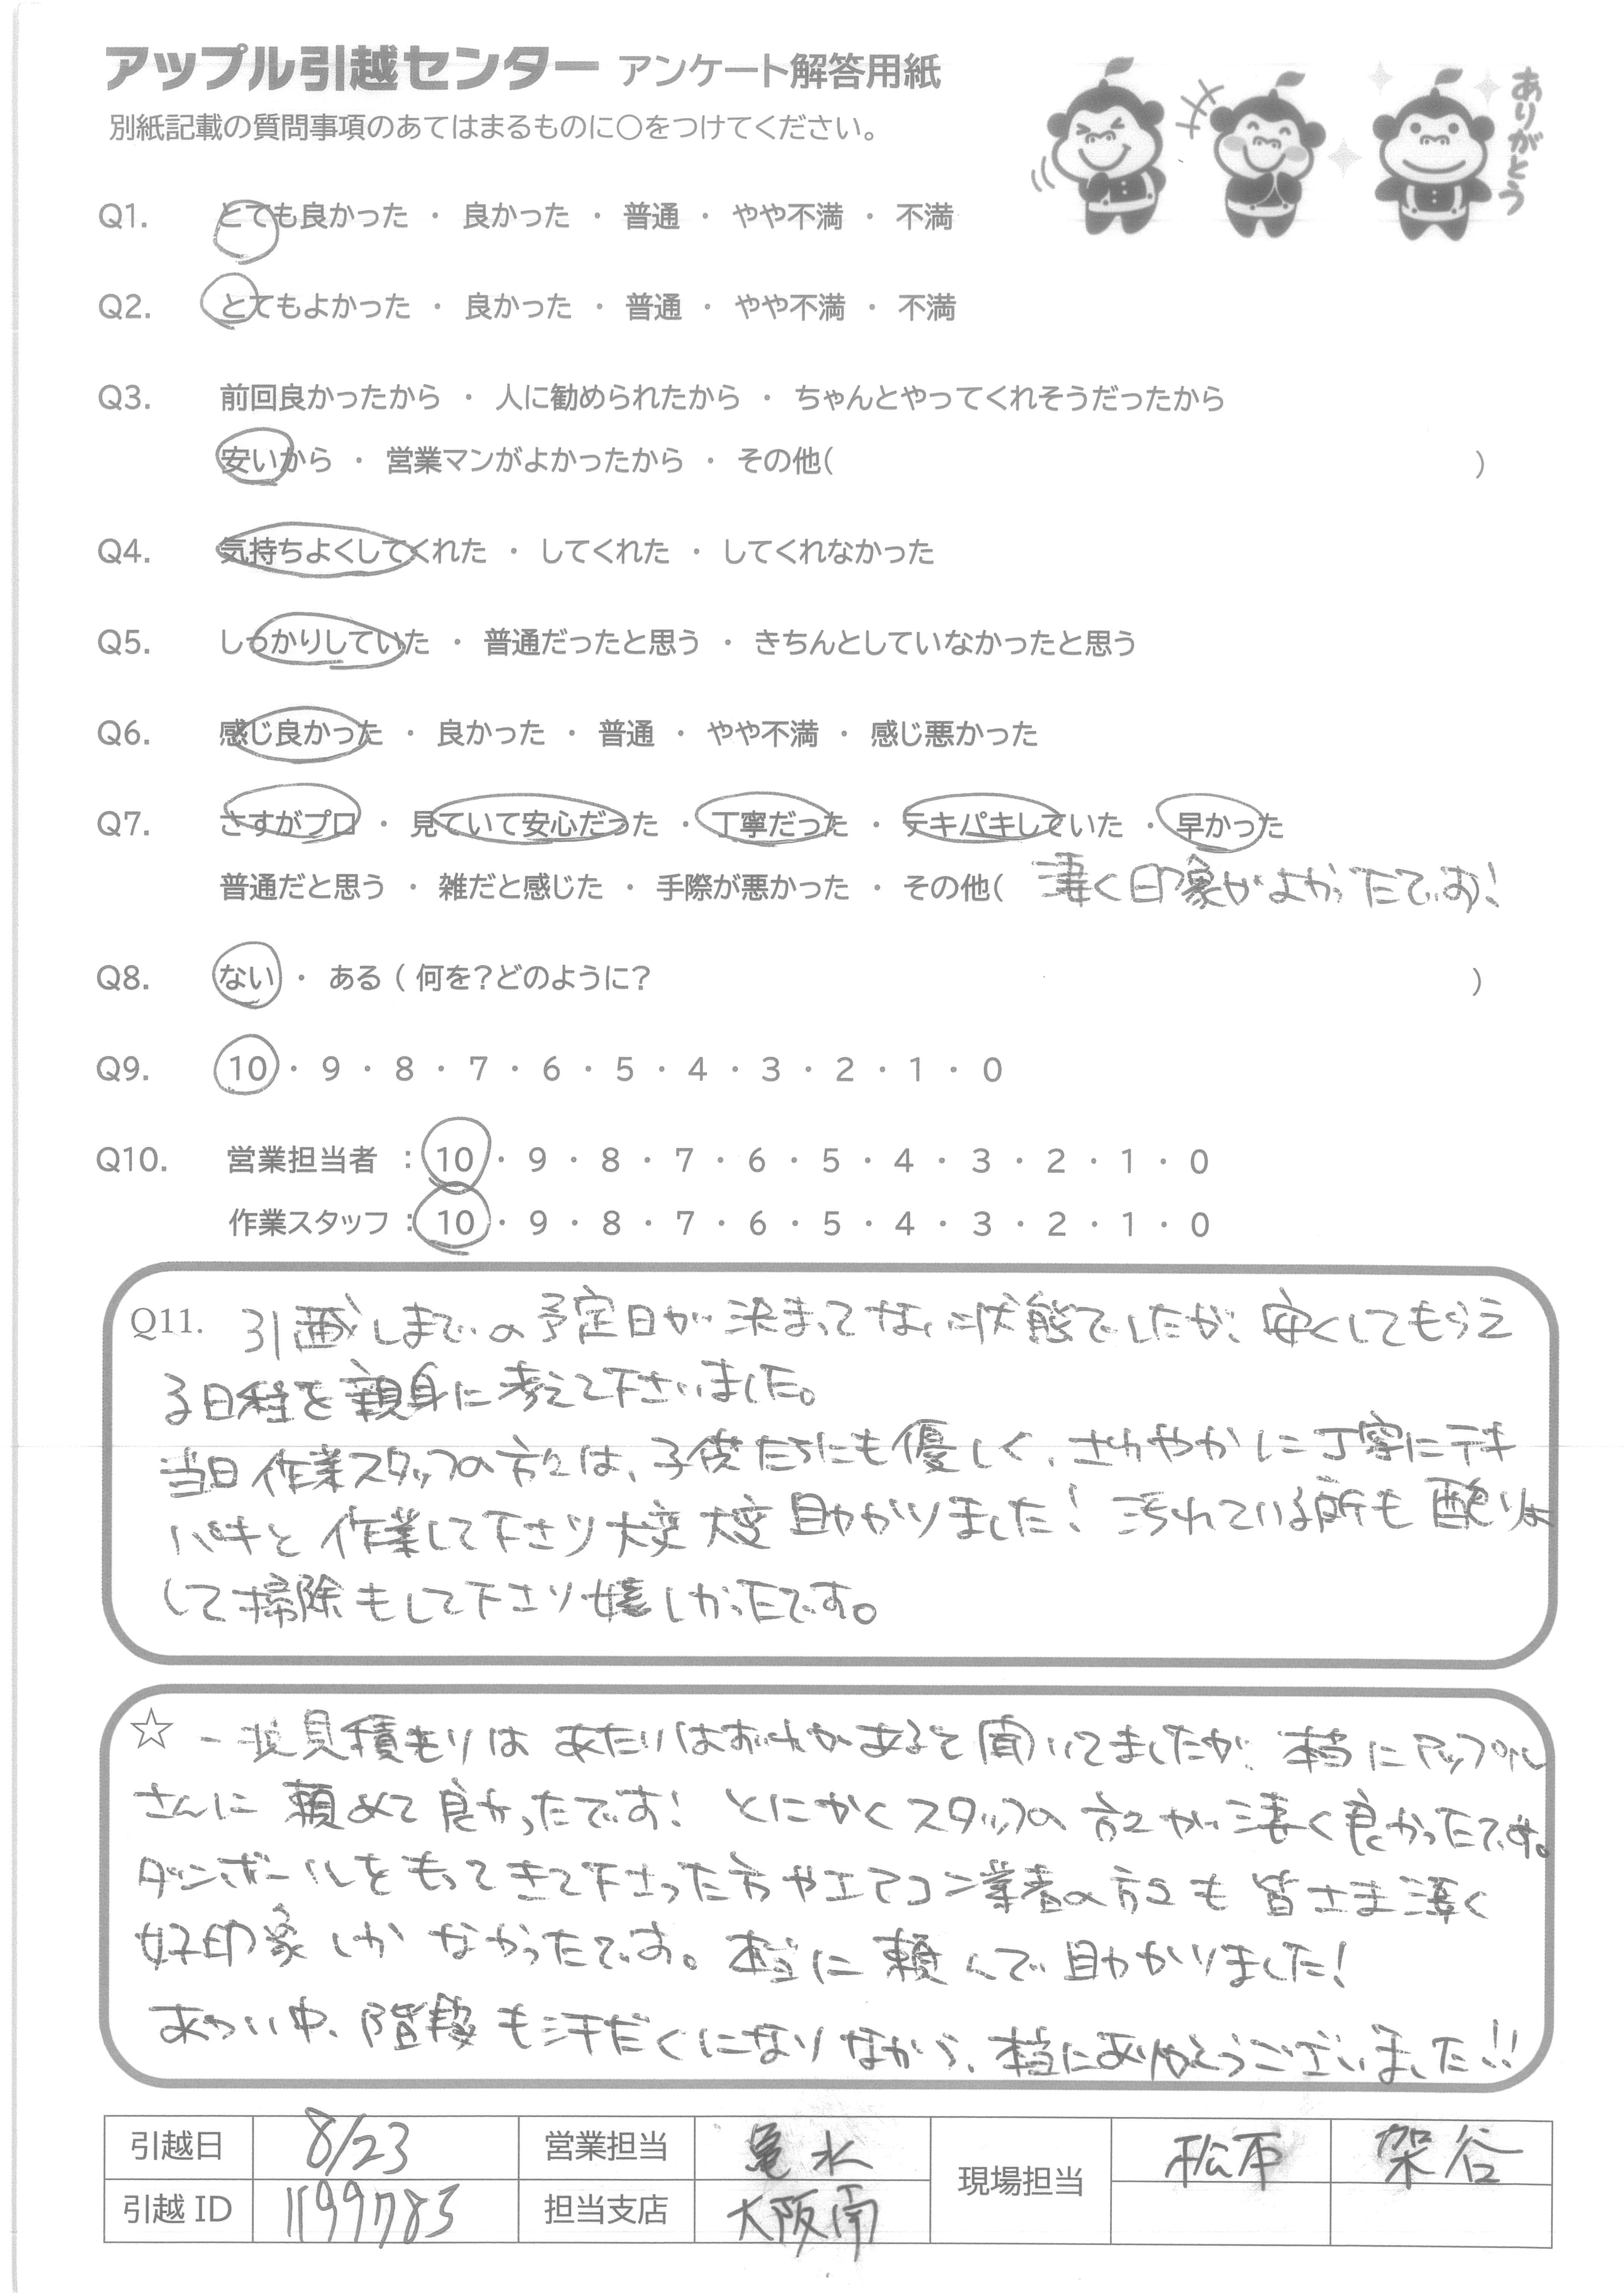 アップル引越センター アンケート解答用紙
別紙記載の質問事項のあてはまるものに○をつけてください。
ありがとう
Q1. とても良かった ・ 良かった ・ 普通 ・ やや不満 ・ 不満
Q2. とてもよかった ・ 良かった ・ 普通 ・ やや不満 ・ 不満
Q3. 前回良かったから ・ 人に勧められたから ・ ちゃんとやってくれそうだったから
安いから ・ 営業マンがよかったから ・ その他( )
Q4. 気持ちよくしてくれた ・ してくれた ・ してくれなかった
Q5. しっかりしていた ・ 普通だったと思う ・ きちんとしていなかったと思う
Q6. 感じ良かった ・ 良かった ・ 普通 ・ やや不満 ・ 感じ悪かった
Q7. さすがプロ ・ 見ていて安心だった ・ 丁寧だった ・ テキパキしていた ・ 早かった
普通だと思う ・ 雑だと感じた ・ 手際が悪かった ・ その他( 凄く印象がよかったです!
Q8. ない ・ ある ( 何を?どのように? )
Q9. 10 ・ 9 ・ 8 ・ 7 ・ 6 ・ 5 ・ 4 ・ 3 ・ 2 ・ 1 ・ 0
Q10. 営業担当者 : 10 ・ 9 ・ 8 ・ 7 ・ 6 ・ 5 ・ 4 ・ 3 ・ 2 ・ 1 ・ 0
作業スタッフ : 10 ・ 9 ・ 8 ・ 7 ・ 6 ・ 5 ・ 4 ・ 3 ・ 2 ・ 1 ・ 0
Q11. 引越しまでの予定日が決まってない状態でしたが、安くしてもらえ
る日程を親身に考えて下さいました。
当日作業スタッフの方々は、子供たちにも優しく、さわやかに丁寧にテキ
パキと作業して下さり大変大変助かりました! 汚れている所も配りょ
して掃除もして下さり嬉しかったです。
☆ 一括見積もりはあたりはずれがあると聞いてましたが、本当にアップル
さんに頼めて良かったです! とにかくスタッフの方々が凄く良かったです。
ダンボールをもってきて下さった方やエアコン業者の方々も皆さま凄く
好印象しかなかったです。本当に頼んで助かりました!
あつい中、階段も汗だくになりながら、本当にありがとうございました!!
引越日 8/23 営業担当 亀水 現場担当 松本 架谷
引越 ID 1199785 担当支店 大阪南